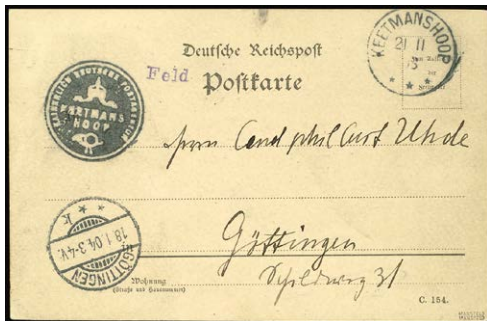 Deutsche Reichspost
Feld
Postkarte
KEETMANSHOOP
21 11
KAISERLICH DEUTSCHE POSTAGENTUR
KEETMANS
HOOP
Herrn Cand phil Curt Uhde
Göttingen
Schildweg 31
GÖTTINGEN
18.1.04.3-4V.
* * k
Wohnung
(Straße und Hausnummer)
C. 154.